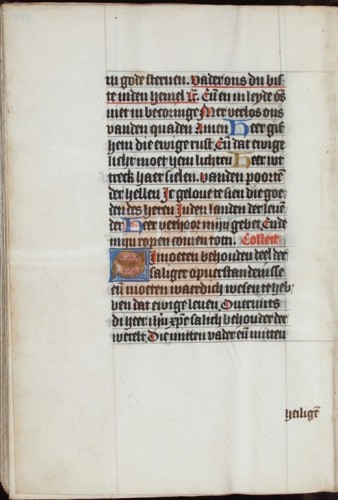 in gode steruen. Vader ons du bis-
te inden hemel ꝛc̃. Eñ en in leyde ōs
niet in becoringe Mer verlos ons
vanden quaden Amen Heer gif
hem die ewige rust. Eñ dat ewige
licht moet hem lichten Heer ver
treck haer sielen. vanden poorten
der hellen Ic geloue te sien die goe
den des heren Inden landen der leuē
der Heer verhoor mijn gebet Ende
mijn ropen comen totti. Collect
Si moeten behouden deel der
saliger opuerstandenisse
eñ moeten waerdich wesen te heb
ben dat ewige leuen. Ouermits
di heer ihū xp̄e salich behouder der
werelt. Die mitten vader eñ mitten
heiligē